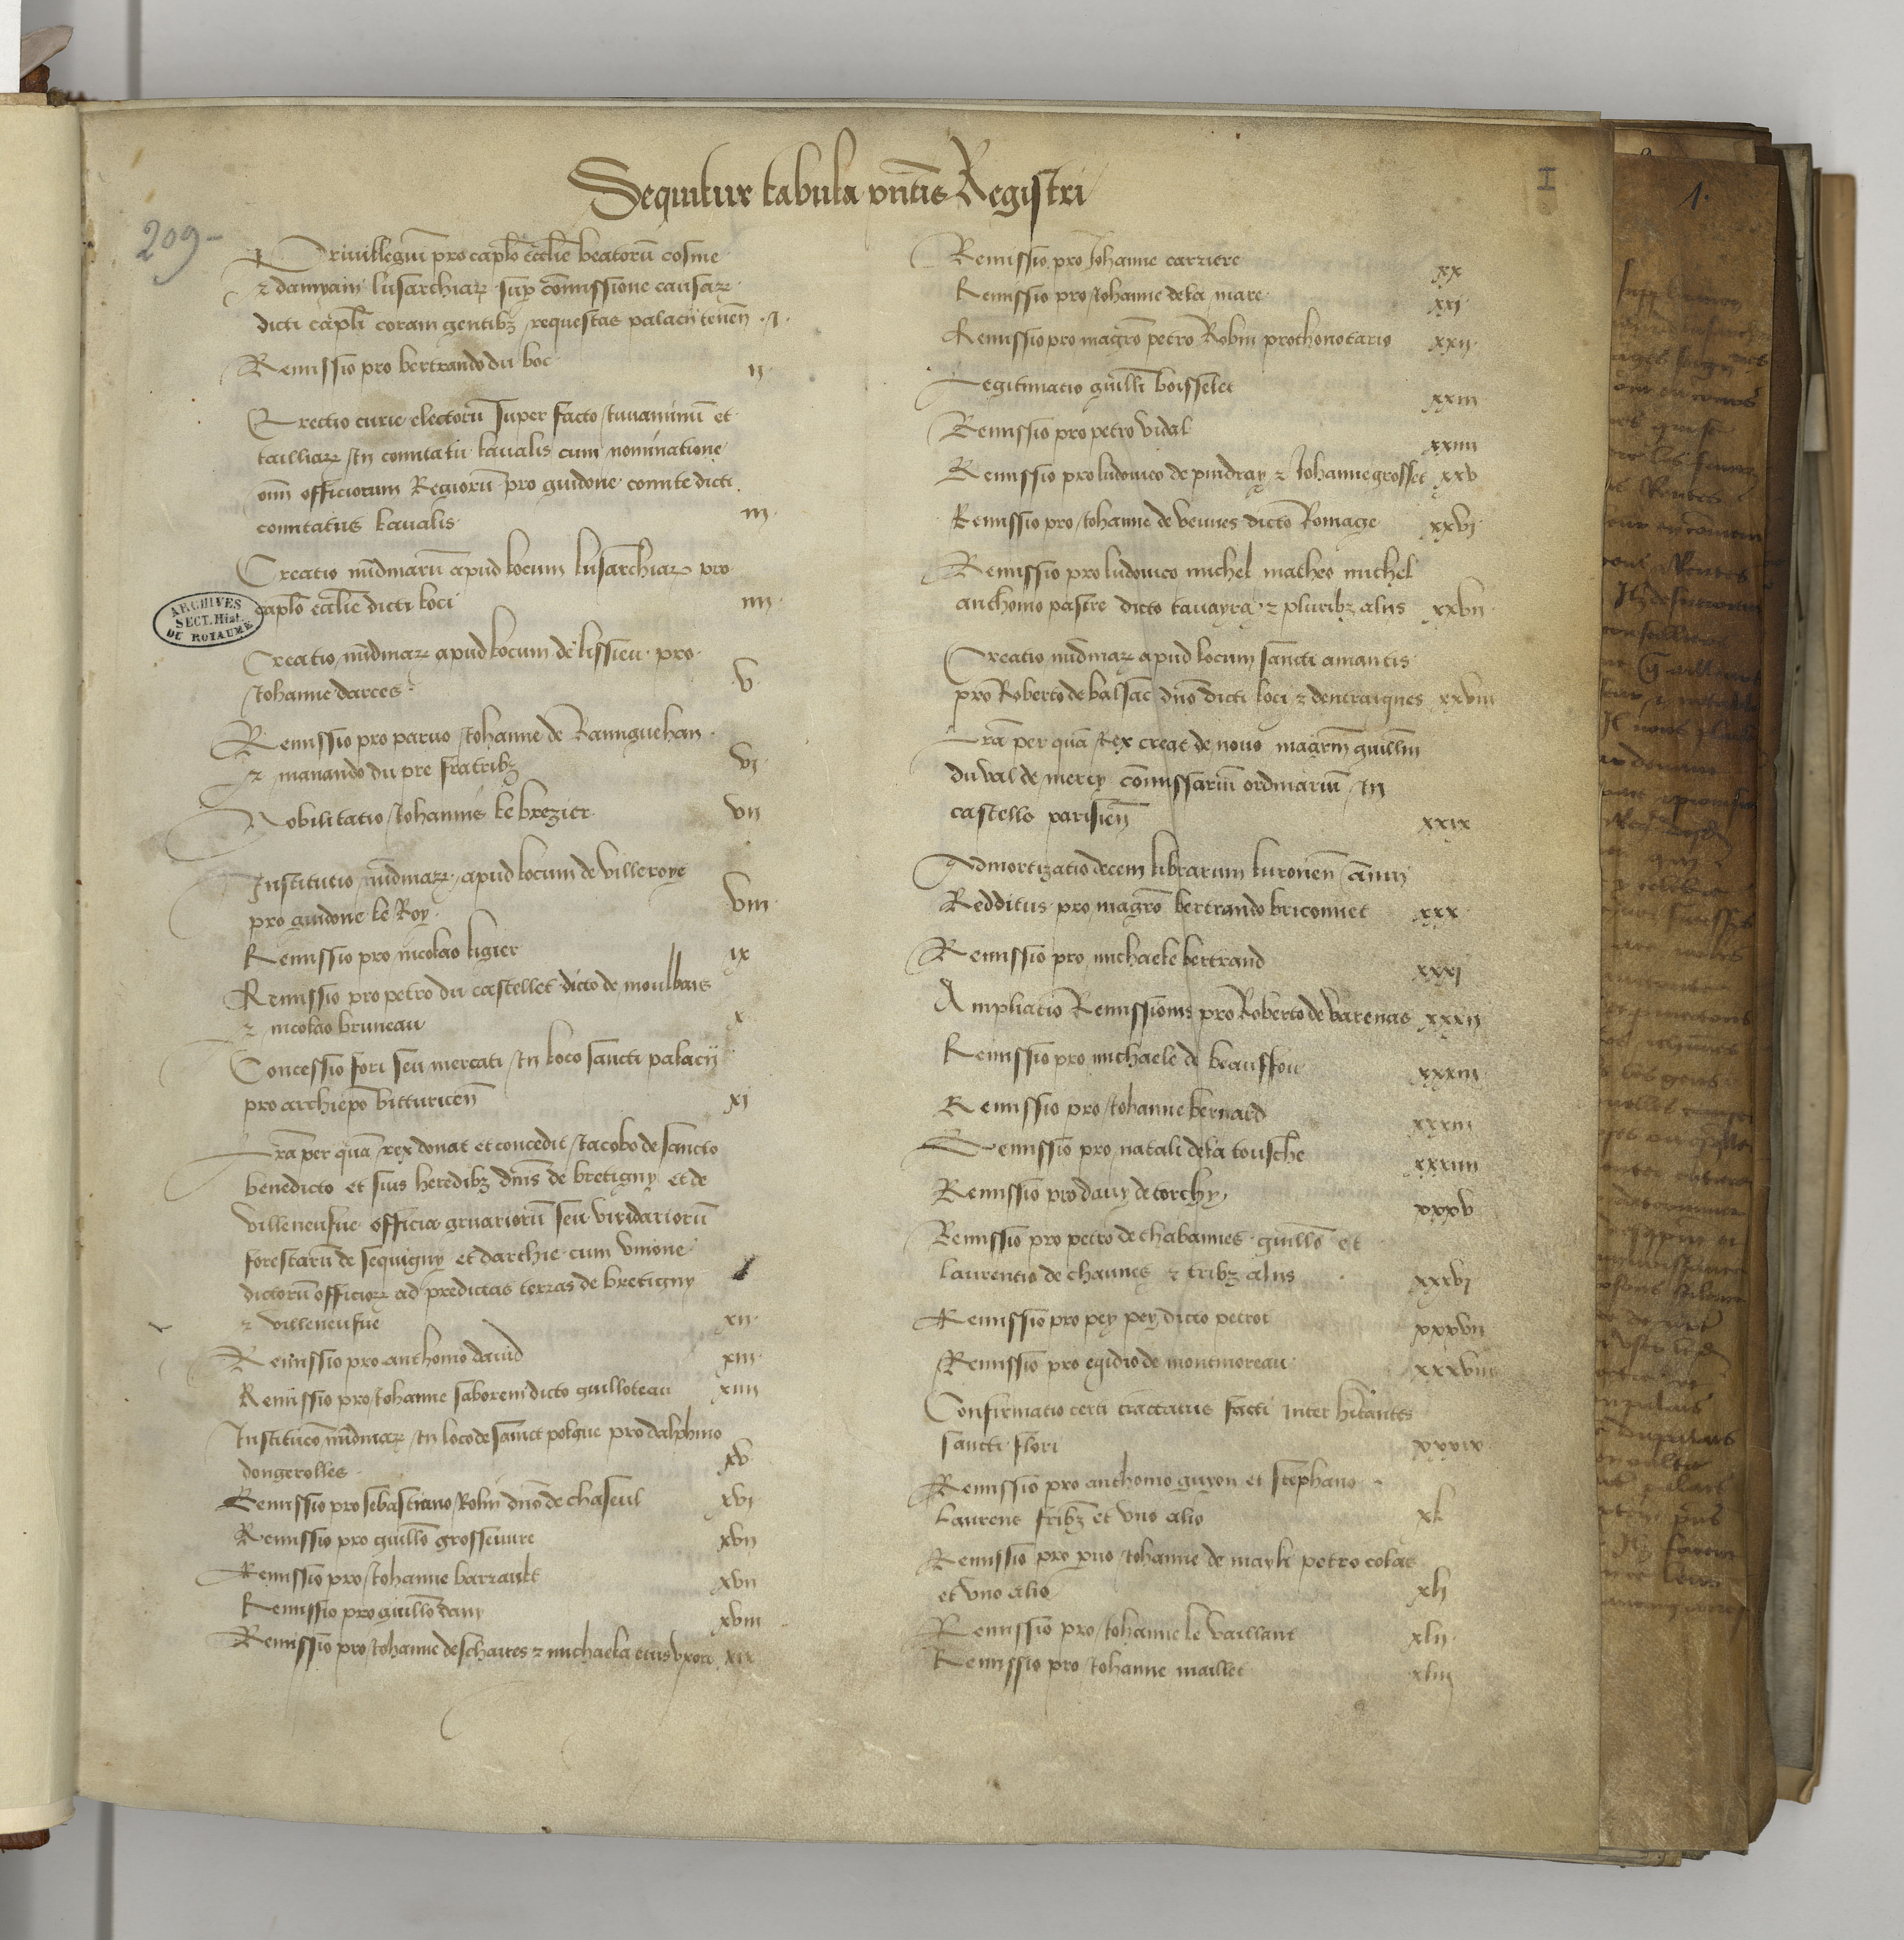 Sequitur tabula pñtis Registri
I
209
Privillegiũ pro caplo eccl̃ie beatorũ cosme
⁊ damyani lusarchiaꝝ sup com̃issione causaꝝ
dicti capli coram gentibꝫ requestas palacij tenen̄ .I.
Remissio pro bertrando du boc ij
Erectio curie electorũ super facto Iuuaminũ et
tailliaꝝ In comitatu lavalis cum nominatione
om̃ officiorum Regiorũ pro guidone comite dicti
comitatus lavalis iij
Creatio nũdinarũ apud locum lusarchiaꝝ pro
caplo eccl̃ie dicti loci iiij
ARCHIVES
SECT. Hist.
DU ROYAUME
Creatio nũdinaꝝ apud locum de lissieu pro
Iohanne darces v
Remissio pro parvo Iohanne de Ranguehan
⁊ manando du pre fratribꝫ vj
Nobilitatio Iohannis le brezier vij
Institutio nũdinaꝝ apud locum de villeroye
pro guidone le Roy viij
Remissio pro nicolao ligier ix
Remissio pro petro du castellet dicto de moulbais
⁊ nicolao bruneau x
Concessio fori seu mercati In loco sancti palacij
pro archiepo bitturicen̄ xj
Lr̃a per quã rex donat et concedit Iacobo de sancto
benedicto et suis heredibꝫ dñis de bretigny et de
villeneufue officia gruariorũ seu viridariorũ
forestarũ de sequigny et darchie cum vnione
dictorũ officioꝝ ad predictas terras de bretigny
⁊ villeneufue xij
Remissio pro anthonio david xiij
Remissio pro Iohanne saborem dicto guilloteau xiiij
Institucõ nũdinaꝝ In loco de sainct polgue pro dalphino
dongerolles xv
Remissio pro sebastiano Rolin dño de chaseul xvj
Remissio pro guillo grossevire xvij
Remissio pro Iohanne barrault xvij
Remissio pro guillo dany xviij
Remissio pro Iohanne deschaires ⁊ michaela eius vxore xix
Remissio pro Iohanne carriere xx
Remissio pro Iohanne dela mare xxj
Remissio pro magrõ petro Robin prothonotario xxij
Legitimatio guilli boisselet xxiij
Remissio pro petro vidal xxiiij
Remissio pro ludovico de pindray ⁊ Iohanne grosset xxv
Remissio pro Iohanne de veuues dicto Romage xxvj
Remissio pro ludovico michel matheo michel
anthonio pastre dicto tavayra ⁊ pluribꝫ alijs xxvij
Creatio nũdinaꝝ apud locum sancti amantis
pro Roberto de balsac dño dicti loci ⁊ dentraigues xxviij
Lr̃a per quã Rex creat de novo magrm̃ guillm̃
du val de mercy com̃issariũ ordinariũ In
castello parisien̄ xxix
Admortizatio decem librarum turonen̄ annui
Redditus pro magrõ bertrando briconnet xxx
Remissio pro michaele bertrand xxxj
Ampliatio Remissionis pro Roberto de varenas xxxij
Remissio pro michaele de beauffou xxxiij
Remissio pro Iohanne bernard xxxiij
Remissio pro natali dela tousche xxxiiij
Remissio pro davy de torchy xxxv
Remissio pro petro de chabannes guillo et
laurentio de chaunes ⁊ tribꝫ alijs xxxvj
Remissio pro pey pey dicto petrot xxxvij
Remissio pro egidio de montmoreau xxxviij
Confirmatio certi tractatus facti inter hitantes
sancti flori xxxix
Remissio pro anthonio guyon et stephano
laurens fribꝫ et vno alio xl
Remissio pro pvo Iohanne de marle petro colas
et vno alio xlj
Remissio pro Iohanne le vaillant xlij
Remissio pro Iohanne maillet xliij
1.